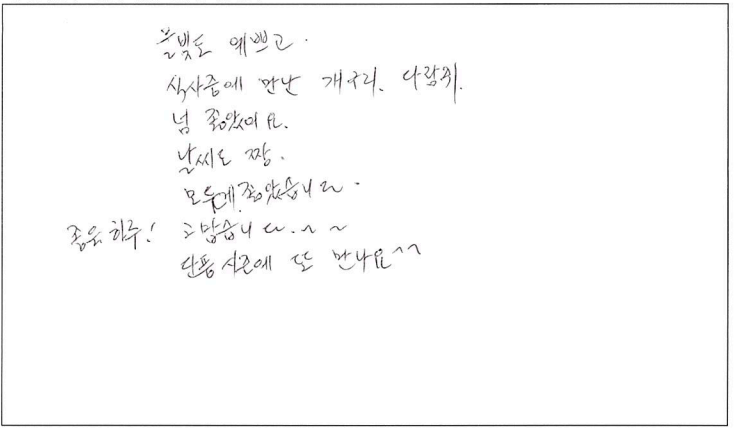 물빛도 예쁘고.
식사중에 만난 개구리. 다람쥐.
넘 좋았어요.
날씨도 짱.
모두에 좋았습니다.
좋은 하루! 고맙습니다.~~
단풍시즌에 또 만나요^^